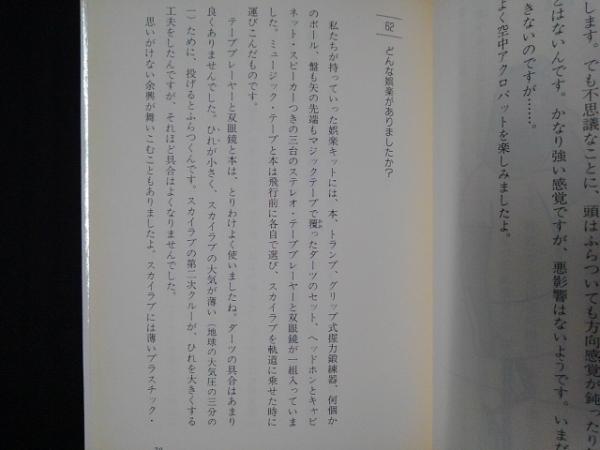 します。でも不思議なことに、頭はふらついても方向感覚が鈍ったり
とはないんです。かなり強い感覚ですが、悪影響はないようです。いまだ
きないのですが……。
よく空中アクロバットを楽しみましたよ。
62 どんな娯楽がありましたか？
私たちが持っていった娯楽キットには、本、トランプ、グリップ式握力鍛練器、何個か
のボール、盤も矢の先端もマジックテープで覆ったダーツのセット、ヘッドホンとキャビ
ネット・スピーカーつきの三台のステレオ・テーププレーヤーと双眼鏡が一組入っていま
した。ミュージック・テープと本は飛行前に各自で選び、スカイラブを軌道に乗せた時に
運びこんだものです。
テーププレーヤーと双眼鏡と本は、とりわけよく使いましたね。ダーツの具合はあまり
良くありませんでした。ひれが小さく、スカイラブの大気が薄い（地球の大気圧の三分の
一）ために、投げるとふらつくんです。スカイラブの第二次クルーが、ひれを大きくする
工夫をしたんですが、それほど具合はよくなりませんでした。
思いがけない余興が舞いこむこともありましたよ。スカイラブには薄いプラスチック・